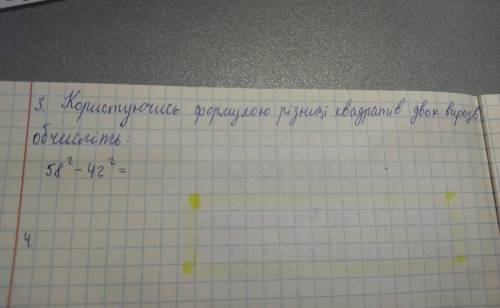 3. Користуючись формулою різниці квадратів двох виразів
обчисліть:
58² - 42² =
4.